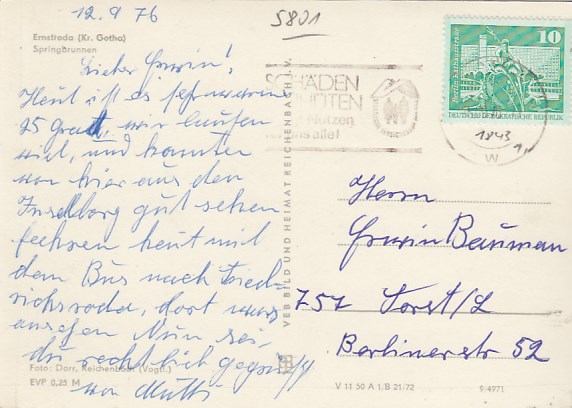 12.9 76
5801
Ernstroda (Kr. Gotha)
Springbrunnen
Lieber Erwin!
Heut ist es sehr warm
25 Grad, wir laufen
viel, und konnten
von hier aus den
Inselberg gut sehen
fahren heut mit
dem Bus nach Fried=
richsroda, dort was
ansehen Nun sei
du recht lich gegrüßt
von Mutti
Foto: Darr, Reichenbach (Vogtl.)
EVP 0,25 M
VEB BILD UND HEIMAT REICHENBACH i. V.
SCHÄDEN
Nutzen
uns allet
Berlin, Rathausstraße
10
DEUTSCHE DEMOKRATISCHE REPUBLIK
1843
W
Herrn
Erwin Bauman
757 Forst/L
Berlinerstr 52
V 11 50 A 1, B 21/72
9/4971